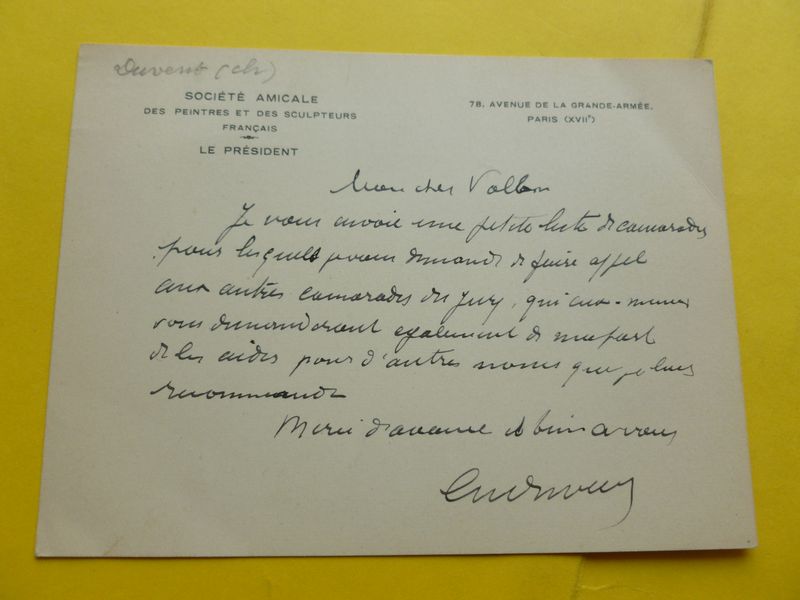 Duvent (ch)
SOCIÉTÉ AMICALE
DES PEINTRES ET DES SCULPTEURS
FRANÇAIS
LE PRÉSIDENT
78, AVENUE DE LA GRANDE-ARMÉE,
PARIS (XVIIe)
Mon cher
Je vous envoie une petite liste de camarades
pour lesquels je vous demande de faire appel
aux autres camarades du Jury, qui eux-mêmes
vous demanderont également de ma part
de les aider pour d'autres noms que je leur
recommande
Merci d'avance et bien à vous